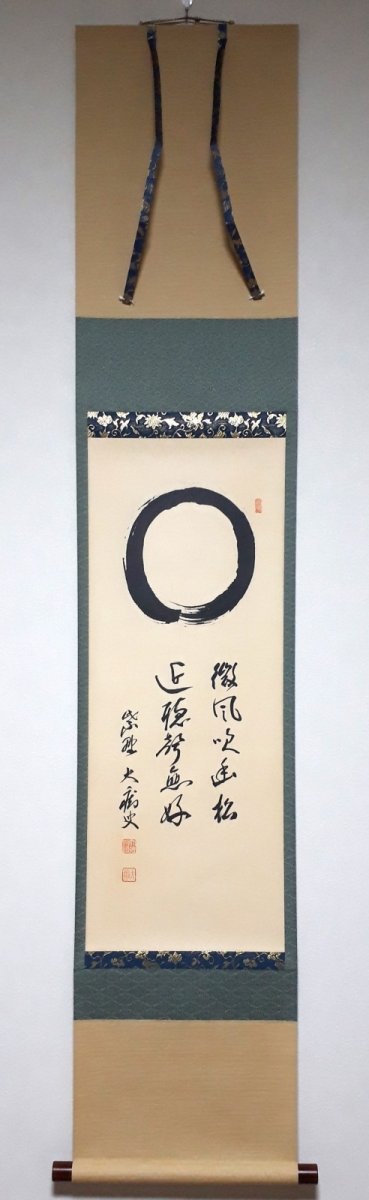 微風吹幽松
近聴声愈好
紫野 大痴叟